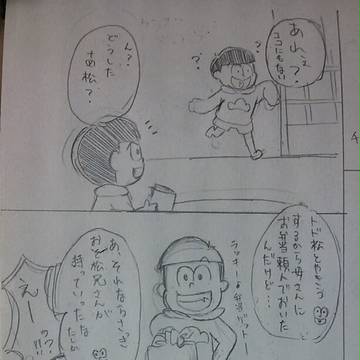 あれぇ?
ココにもない
?
?
ん?
どうした
十四松?
トド松とやきう
するから母さんに
お弁当頼んでおいた
んだけど…
ラッキー♪弁当ゲットー
あ、それならさっき
おそ松兄さんが
持っていったな
たしか
えー
!!?